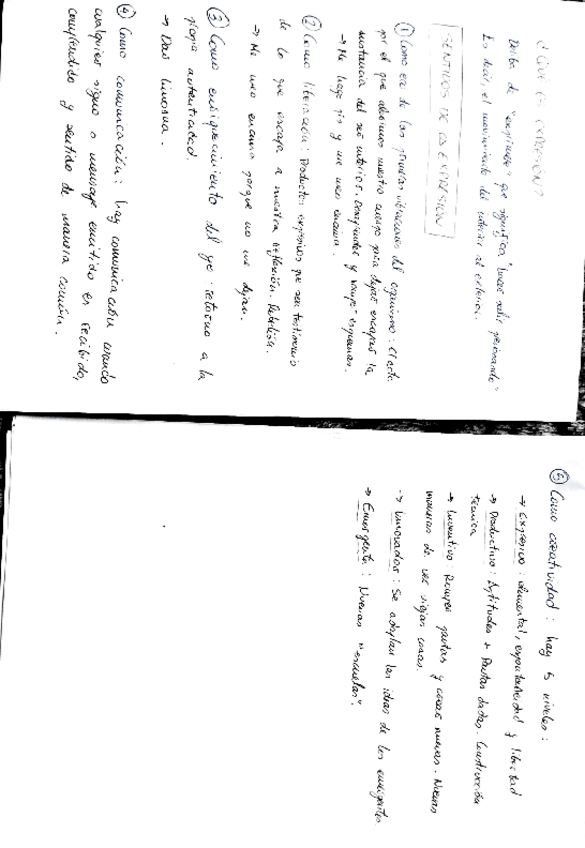 ¿QUÉ ES EXPRESIÓN?
Deriba de "exprimere" que significa "hacer salir presionando"
Es decir, el movimiento del interior al exterior.
SENTIDOS DE LA EXPRESIÓN
① Como eco de las primeras vibraciones del organismo: El acto
por el que abrimos nuestro cuerpo para dejar escapar la
sustancia del ser interior. Comprender y romper esquemas.
→ Me hago pis y me meo encima.
② Como liberación: Productos expresivos que son testimonio
de lo que escapa a nuestra reflexión. Rebeldía.
→ Me meo encima porque no me dejan.
③ Como enriquecimiento del yo: retorno a la
propia autenticidad.
→ Das limosna.
④ Como comunicación: hay comunicación cuando
cualquier signo o mensaje emitido es recibido,
comprendido y sentido de manera común.
⑤ Como creatividad: hay 5 niveles:
→ Expresivo: elemental, espontaneidad y libertad
→ Productivo: Aptitudes + Pautas dadas. Construcción
técnica
→ Inventivo: Rompes pautas y creas nuevas. Nuevas
maneras de ver viejas cosas.
→ Innovador: Se adoptan las ideas de los emergentes
→ Emergente: Nuevas "escuelas".